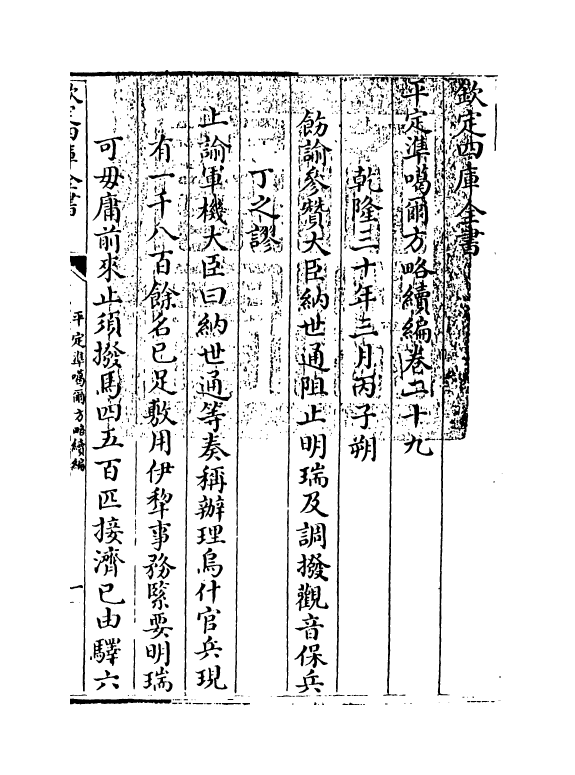 欽定四庫全書
平定準噶爾方略續編卷二十九
乾隆三十年三月丙子朔
飭諭參贊大臣納世通阻止明瑞及調撥觀音保兵
丁之謬
上諭軍機大臣曰納世通等奏稱辦理烏什官兵現
有一千八百餘名已足敷用伊犂事務緊要明瑞
可毋庸前來止須撥馬四五百匹接濟已由驛六
欽定四庫全書
平定準噶爾方略續編
一